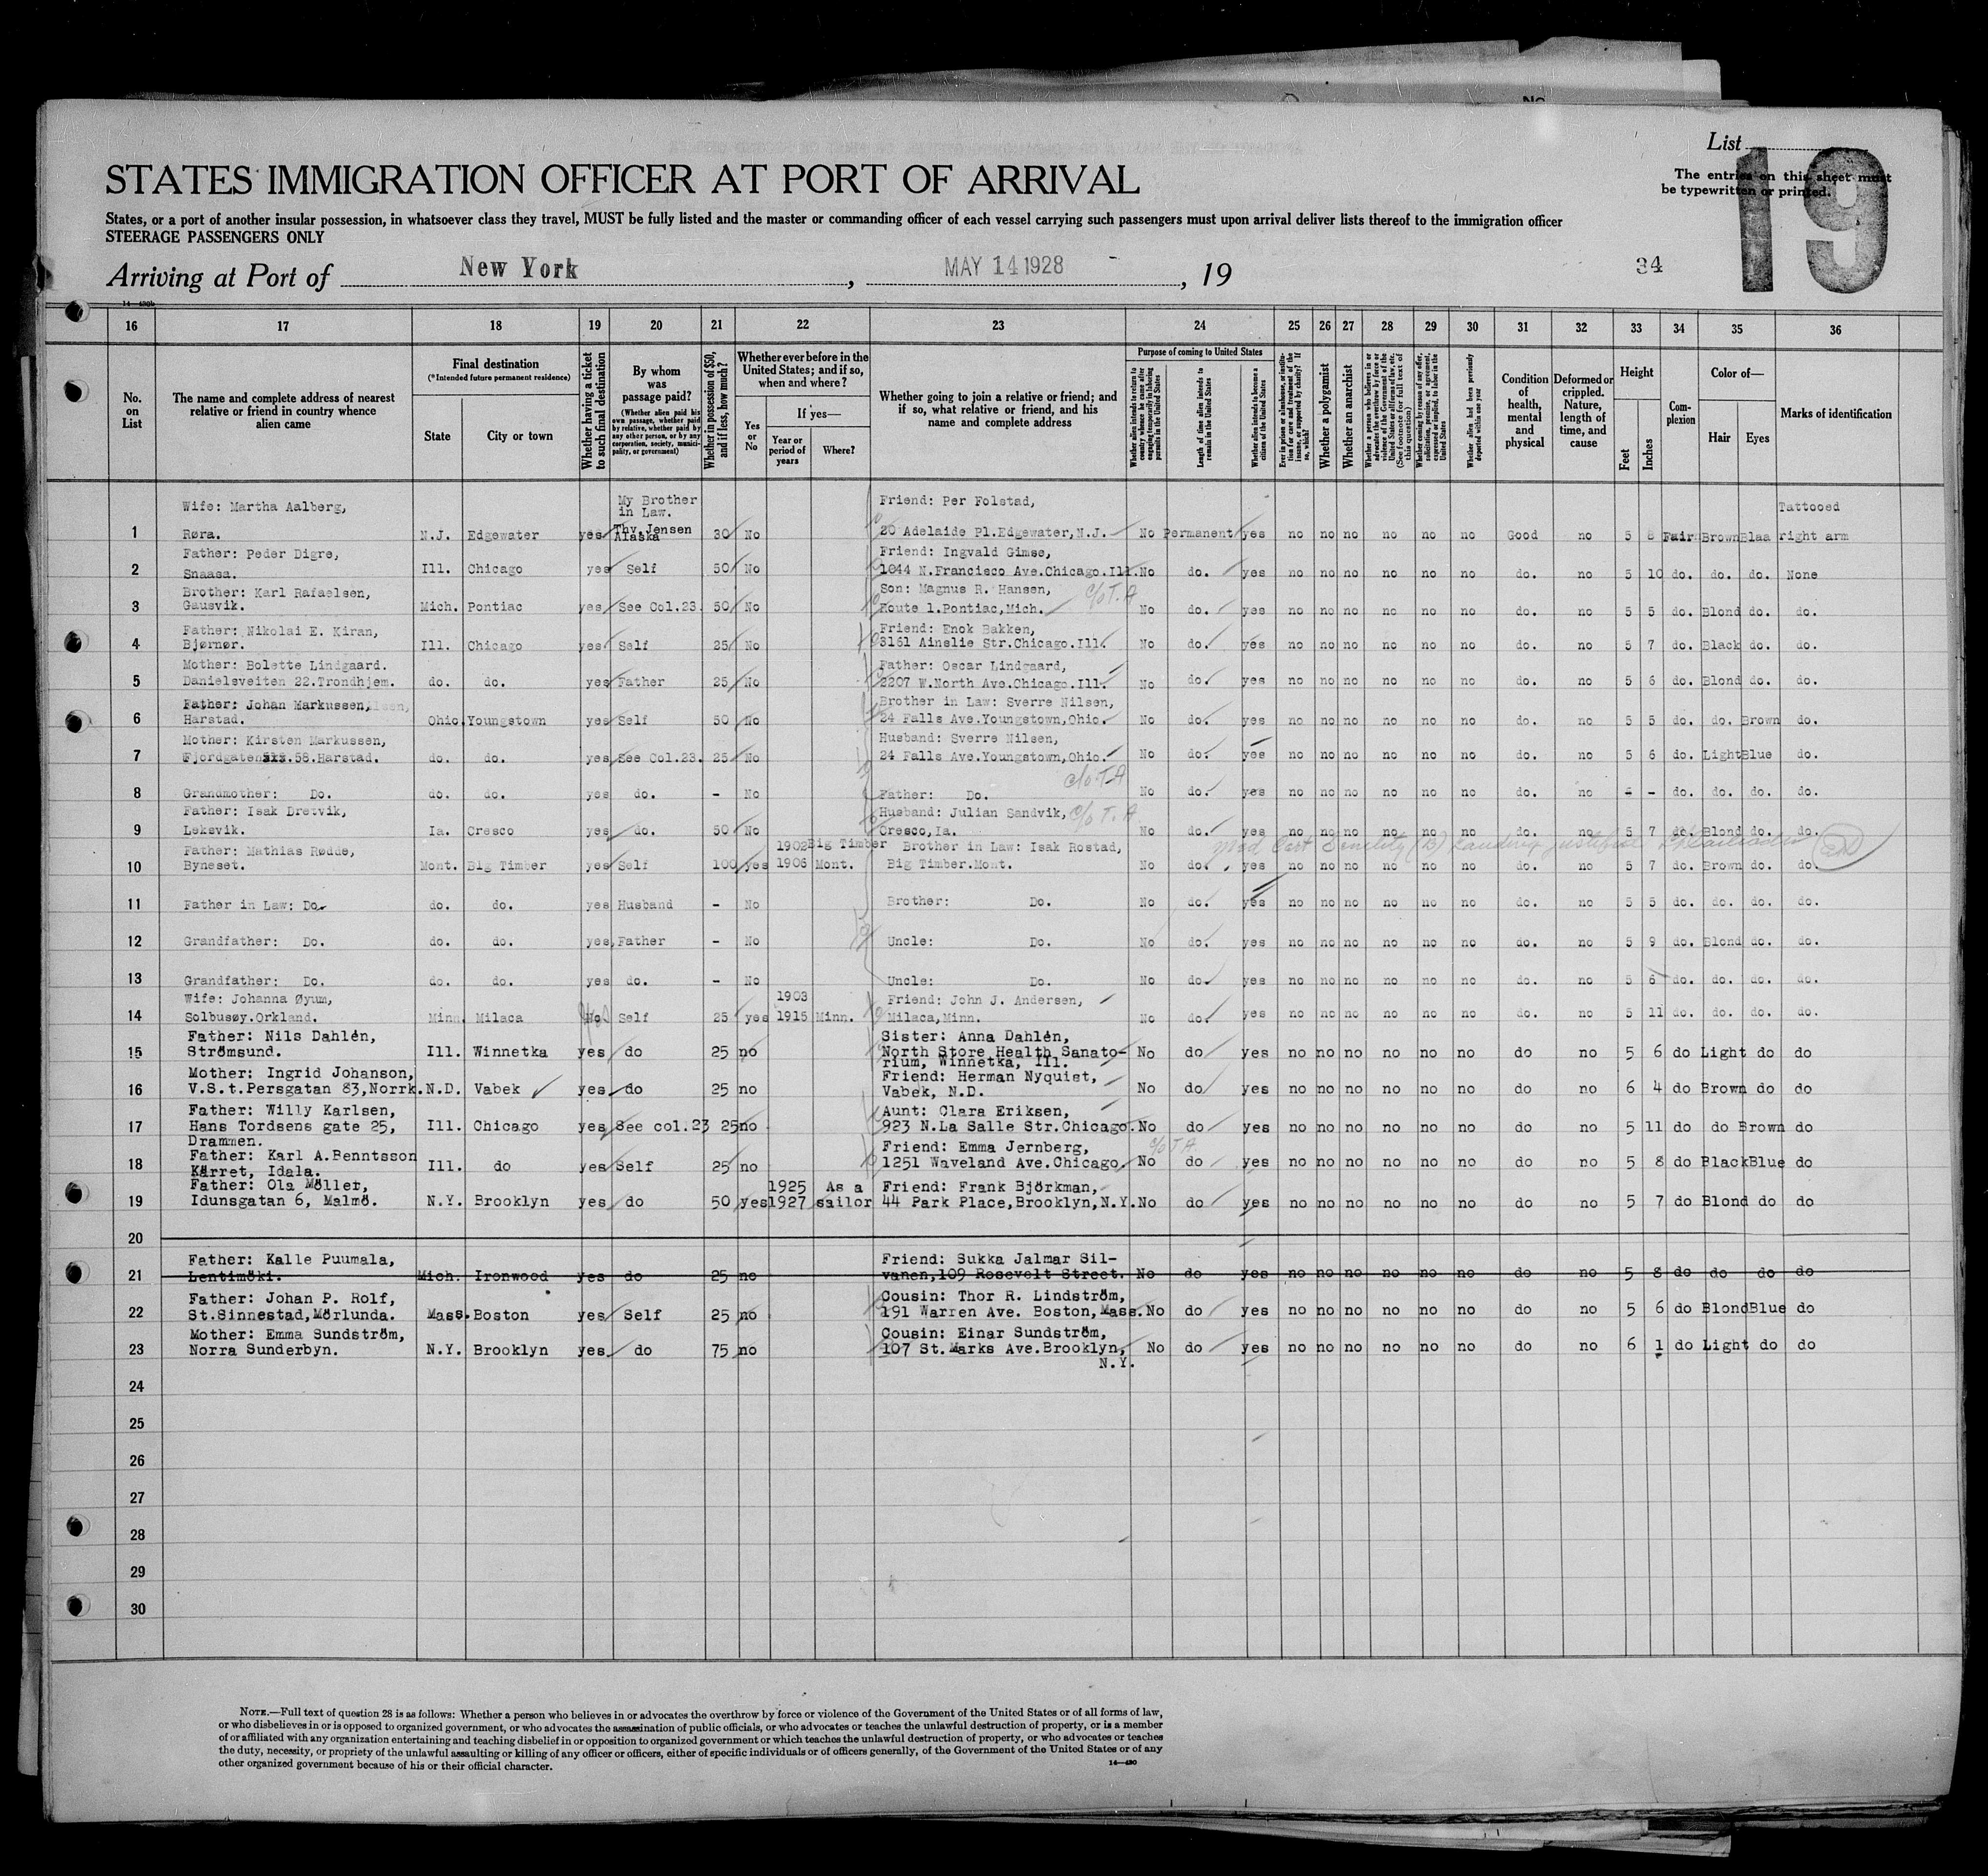 List
19
The entries on this sheet must
be typewritten or printed.
STATES IMMIGRATION OFFICER AT PORT OF ARRIVAL
States, or a port of another insular possession, in whatsoever class they travel, MUST be fully listed and the master or commanding officer of each vessel carrying such passengers must upon arrival deliver lists thereof to the immigration officer
STEERAGE PASSENGERS ONLY
Arriving at Port of New York, MAY 14 1928, 19
34
16 17 18 19 20 21 22 23 24 25 26 27 28 29 30 31 32 33 34 35 36
No. on List
The name and complete address of nearest relative or friend in country whence alien came
Final destination
(*Intended future permanent residence)
State
City or town
Whether having a ticket to such final destination
By whom was passage paid?
(Whether alien paid his own passage, whether paid by relative, whether paid by any other person, or by any corporation, society, municipality, or government)
Whether in possession of $50, and if less, how much?
Whether ever before in the United States; and if so, when and where?
Yes or No
If yes—
Year or period of years
Where?
Whether going to join a relative or friend; and if so, what relative or friend, and his name and complete address
Purpose of coming to United States
Whether alien intends to return to country whence he came after engaging temporarily in laboring pursuits in the United States
Length of time alien intends to remain in the United States
Whether alien intends to become a citizen of the United States
Ever in prison or almshouse, or institution for care and treatment of the insane, or supported by charity? If so, which?
Whether a polygamist
Whether an anarchist
Whether a person who believes in or advocates the overthrow by force or violence of the Government of the United States or all forms of law, etc. (See footnote for full text of this question)
Whether coming by reason of any offer, solicitation, promise, or agreement, expressed or implied, to labor in the United States
Whether alien had been previously deported within one year
Condition of health, mental and physical
Deformed or crippled. Nature, length of time, and cause
Height
Feet
Inches
Complexion
Color of—
Hair
Eyes
Marks of identification
1 Wife: Martha Aalberg, Røra. N.J. Edgewater yes My Brother in Law. Thv. Jensen Alaska 30 No Friend: Per Folstad, 20 Adelaide Pl.Edgewater,N.J. No Permanent yes no no no no no no Good no 5 8 Fair Brown Blaa Tattooed right arm
2 Father: Peder Digre, Snaasa. Ill. Chicago yes Self 50 No Friend: Ingvald Gimse, 1044 N.Francisco Ave.Chicago.Ill. No do. yes no no no no no no do. no 5 10 do. do. do. None
3 Brother: Karl Rafaelsen, Gausvik. Mich. Pontiac yes See Col.23. 50 No Son: Magnus R. Hansen, c/o T.A Route 1.Pontiac,Mich. No do. yes no no no no no no do. no 5 5 do. Blond do. do.
4 Father: Nikolai E. Kiran, Bjørnør. Ill. Chicago yes Self 25 No Friend: Enok Bakken, 3161 Ainslie Str.Chicago.Ill. No do. yes no no no no no no do. no 5 7 do. Black do. do.
5 Mother: Bolette Lindgaard. Danielsveiten 22.Trondhjem. do. do. yes Father 25 No Father: Oscar Lindgaard, 2207 W.North Ave.Chicago.Ill. No do. yes no no no no no no do. no 5 6 do. Blond do. do.
6 Father: Johan Markussen, Harstad. Ohio. Youngstown yes Self 50 No Brother in Law: Sverre Nilsen, 24 Falls Ave.Youngstown,Ohio. No do. yes no no no no no no do. no 5 5 do. do. Brown do.
7 Mother: Kirsten Markussen, Fjordgaten 58.Harstad. do. do. yes See Col.23. 25 No Husband: Sverre Nilsen, 24 Falls Ave.Youngstown,Ohio. No do. yes no no no no no no do. no 5 6 do. Light Blue do.
8 Grandmother: Do. do. do. yes do. - No c/o T.A Father: Do. No do. yes no no no no no no do. no - - do. do. do. do.
9 Father: Isak Dretvik, Leksvik. Ia. Cresco yes do. 50 No Husband: Julian Sandvik, c/o T.A. Cresco,Ia. No do. yes no no no no no no do. no 5 7 do. Blond do. do.
10 Father: Mathias Rødde, Byneset. Mont. Big Timber yes Self 100 yes 1902 1906 Big Timber Mont. Brother in Law: Isak Rostad, Big Timber.Mont. No do. yes no no no no no no do. no 5 7 do. Brown do. do.
Med Cert Senility (B)
11 Father in Law: Do. do. do. yes Husband - No Brother: Do. No do. yes no no no no no no do. no 5 5 do. do. do. do.
12 Grandfather: Do. do. do. yes Father - No Uncle: Do. No do. yes no no no no no no do. no 5 9 do. Blond do. do.
13 Grandfather: Do. do. do. yes do. - No Uncle: Do. No do. yes no no no no no no do. no 5 6 do. do. do. do.
14 Wife: Johanna Øyum, Solbusøy.Orkland. Minn. Milaca No. Self 25 yes 1903 1915 Minn. Friend: John J. Andersen, Milaca,Minn. No do. yes no no no no no no do. no 5 11 do. do. do. do.
15 Father: Nils Dahlén, Strömsund. Ill. Winnetka yes do 25 no Sister: Anna Dahlén, North Store Health Sanato- rium, Winnetka, Ill. No do yes no no no no no no do no 5 6 do Light do do
16 Mother: Ingrid Johanson, V.S.t.Persgatan 83,Norrk. N.D. Vabek yes do 25 no Friend: Herman Nyquist, Vabek, N.D. No do yes no no no no no no do no 6 4 do Brown do do
17 Father: Willy Karlsen, Hans Tordsens gate 25, Drammen. Ill. Chicago yes See col.23 25 no Aunt: Clara Eriksen, 923 N.La Salle Str.Chicago. No do yes no no no no no no do no 5 11 do do Brown do
18 Father: Karl A.Benntsson Kärret, Idala. Ill. do yes Self 25 no Friend: Emma Jernberg, c/o T A 1251 Waveland Ave.Chicago. No do yes no no no no no no do no 5 8 do Black Blue do
19 Father: Ola Möller, Idunsgatan 6, Malmö. N.Y. Brooklyn yes do 50 yes 1925 1927 As a sailor Friend: Frank Björkman, 44 Park Place,Brooklyn,N.Y. No do yes no no no no no no do no 5 7 do Blond do do
20
21 Father: Kalle Puumala, Lentimöki. Mich. Ironwood yes do 25 no Friend: Sukka Jalmar Sil- vanen,109 Rosevelt Street. No do yes no no no no no no do no 5 8 do do do do
22 Father: Johan P. Rolf, St.Sinnestad,Mörlunda. Mass. Boston yes Self 25 no Cousin: Thor R. Lindström, 191 Warren Ave. Boston,Mass. No do yes no no no no no no do no 5 6 do Blond Blue do
23 Mother: Emma Sundström, Norra Sunderbyn. N.Y. Brooklyn yes do 75 no Cousin: Einar Sundström, 107 St.Marks Ave.Brooklyn, N.Y. No do yes no no no no no no do no 6 1 do Light do do
24
25
26
27
28
29
30
NOTE.—Full text of question 28 is as follows: Whether a person who believes in or advocates the overthrow by force or violence of the Government of the United States or of all forms of law,
or who disbelieves in or is opposed to organized government, or who advocates the assassination of public officials, or who advocates or teaches the unlawful destruction of property, or is a member
of or affiliated with any organization entertaining and teaching disbelief in or opposition to organized government or which teaches the unlawful destruction of property, or who advocates or teaches
the duty, necessity, or propriety of the unlawful assaulting or killing of any officer or officers, either of specific individuals or of officers generally, of the Government of the United States or of any
other organized government because of his or their official character.
14—430